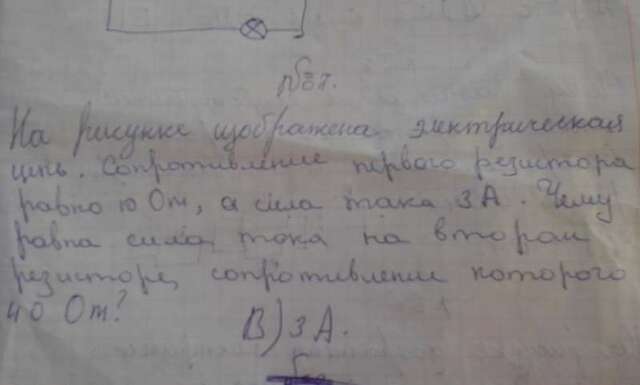 № 37.
На рисунке изображена электрическая
цепь. Сопротивление первого резистора
равно 10 Ом, а сила тока 3А. Чему
равна сила тока на втором
резисторе, сопротивление которого
40 Ом?
В) 3А.